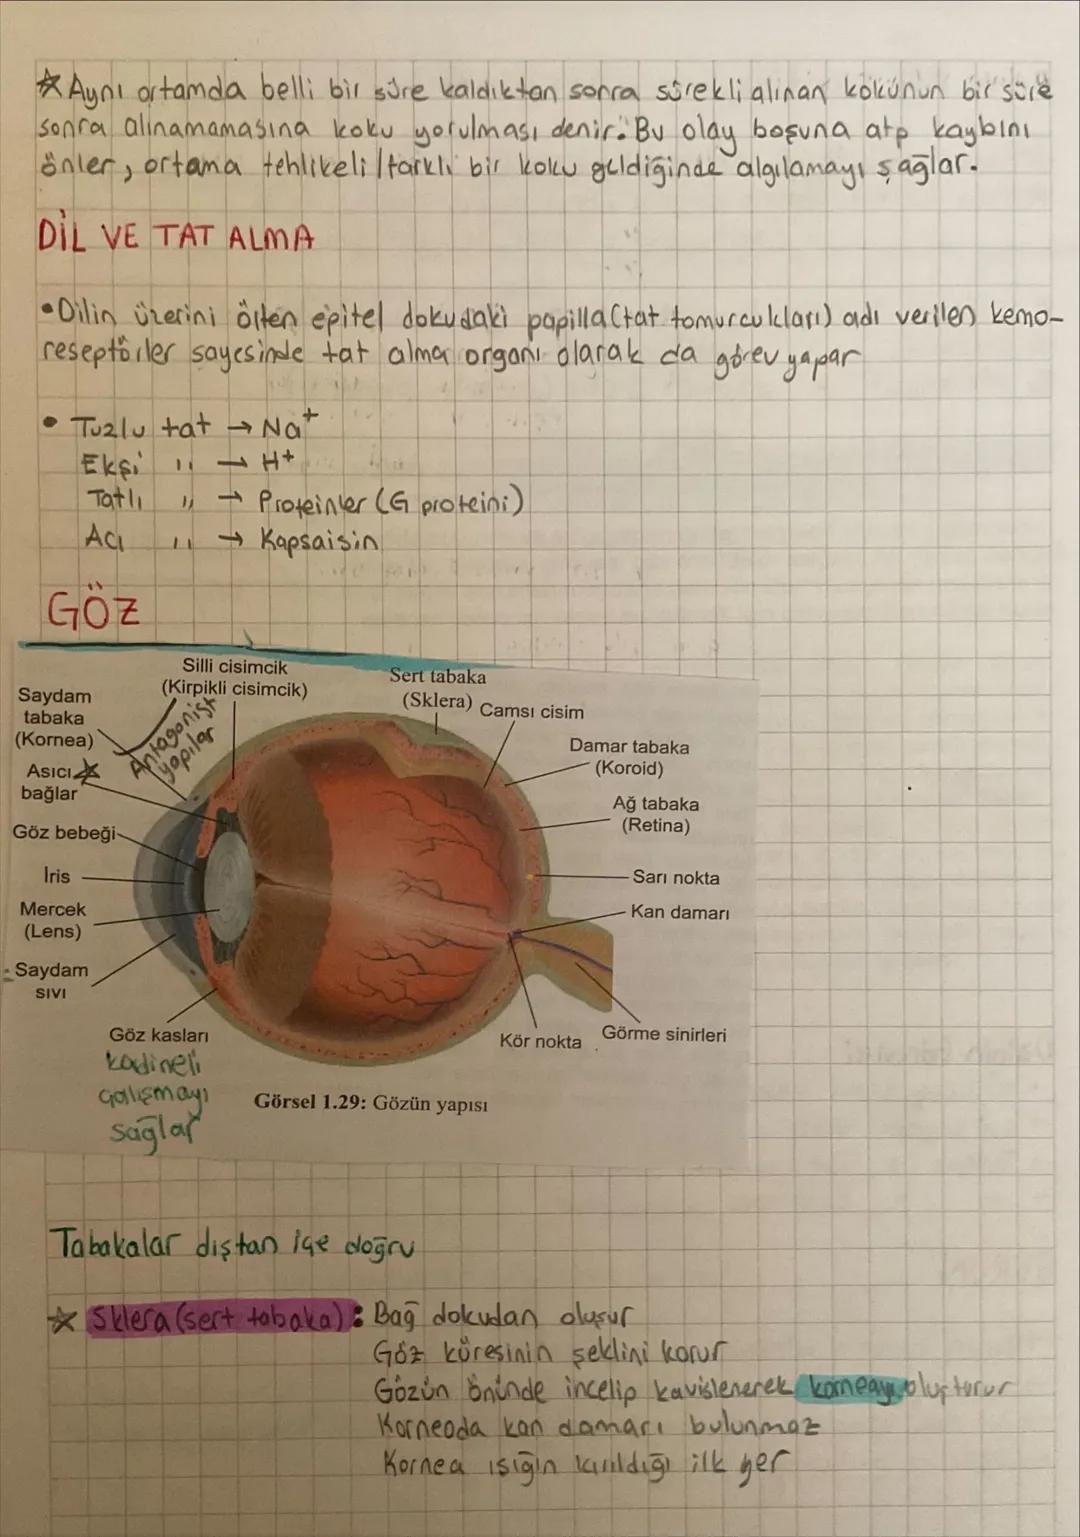 ☆ Aynı ortamda belli bir süre kaldıktan sonra sürekli alınan kokunun bir süre
sonra alınamamasına koku yorulması denir. Bu olay boşuna atp kaybını
önler, ortama tehlikeli/farklı bir koku geldiğinde algılamayı sağlar.
DİL VE TAT ALMA
• Dilin üzerini örten epitel dokudaki papilla (tat tomurcukları) adı verilen kemo-
reseptörler sayesinde tat alma organı olarak da görev yapar
• Tuzlu tat → Na⁺
Ekşi " → H⁺
Tatlı " → Proteinler (G proteini)
Acı " → Kapsaisin
GÖZ
Silli cisimcik
(Kirpikli cisimcik)
Sert tabaka
(Sklera)
Camsı cisim
Saydam
tabaka
(Kornea)
Antagonist
yapılar
Damar tabaka
(Koroid)
Asıcı ☆
bağlar
Ağ tabaka
(Retina)
Göz bebeği
İris
Sarı nokta
Mercek
(Lens)
Kan damarı
Saydam
sıvı
Göz kasları
Kör nokta
Görme sinirleri
çalışmayı
sağlar
Görsel 1.29: Gözün yapısı
Tabakalar dıştan içe doğru
☆ Sklera (sert tabaka): Bağ dokudan oluşur
Göz küresinin şeklini korur
Gözün önünde incelip kavislenerek korneayı oluşturur
Korneada kan damarı bulunmaz
Kornea ışığın kırıldığı ilk yer